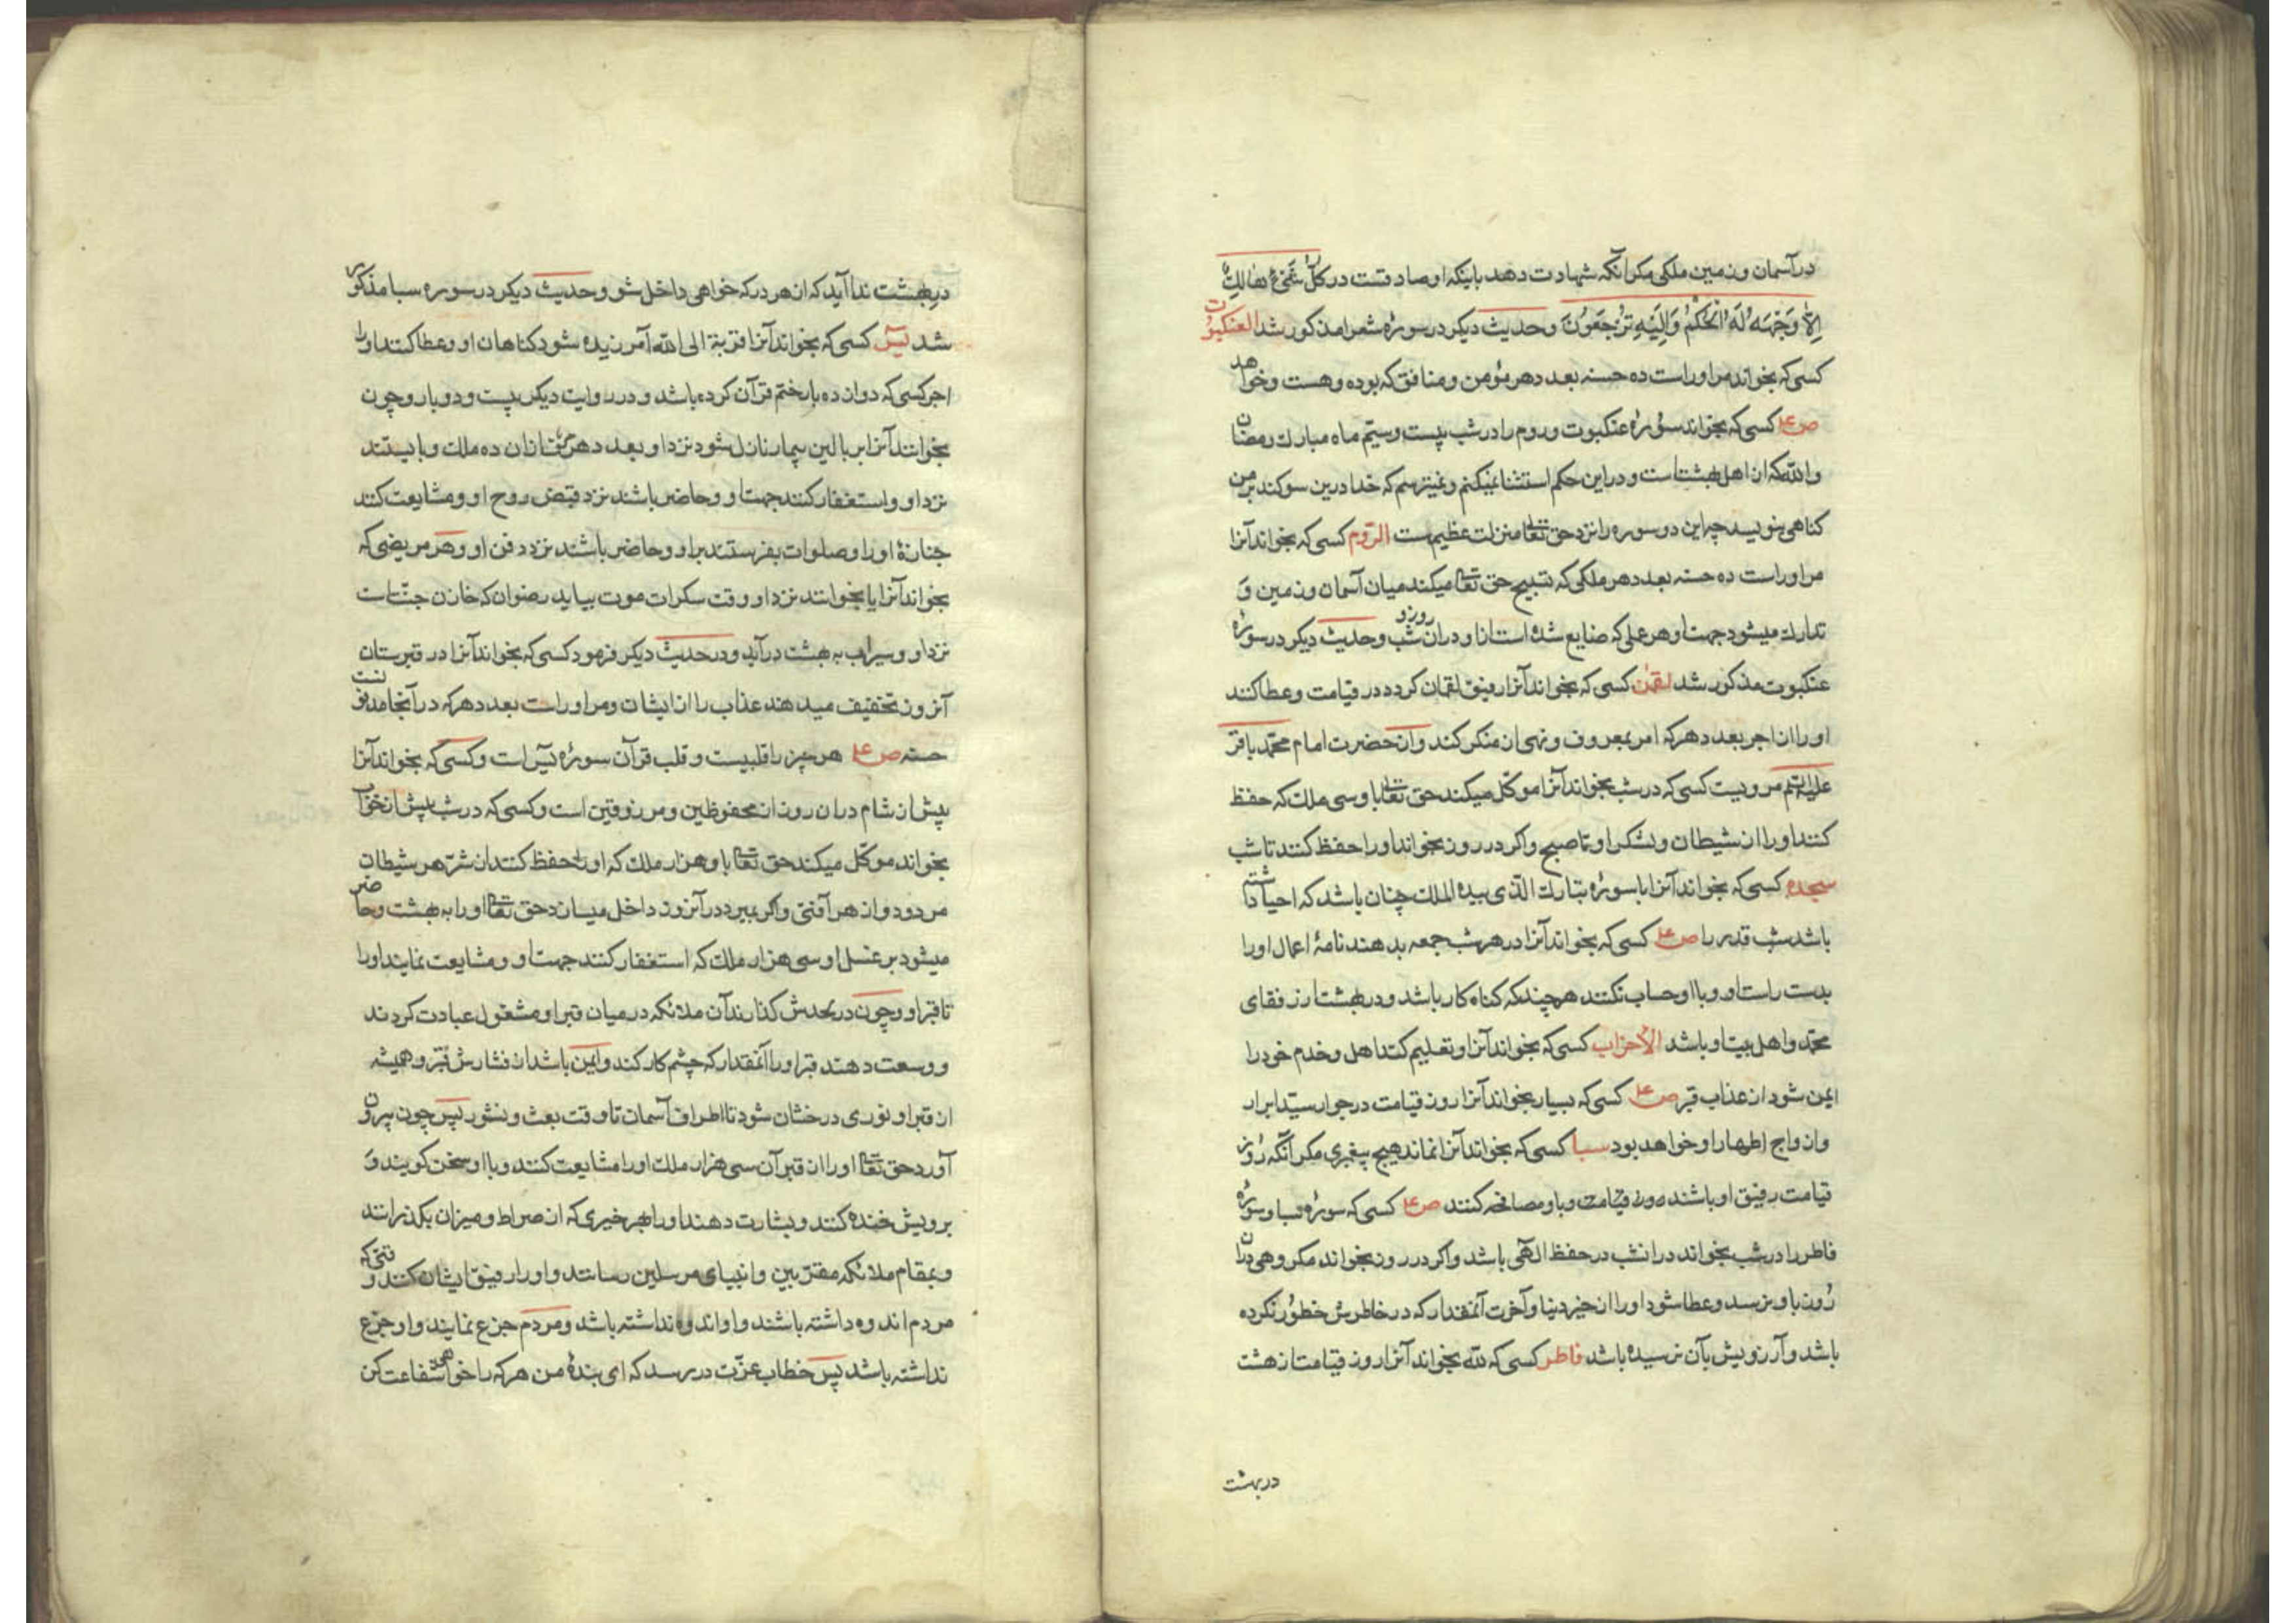 در آسمان و زمین ملکی مکر آنکه شهادت دهد باینکه او صادقست در کل شئ هالک
الا وجهه له الحکم والیه ترجعون وحدیث دیکر در سورهٔ شعرا مذکور شد العنکبوت
کسی که بخواند مر او راست ده حسنه بعدد هر مؤمن و منافق که بوده وهست وخواهد
ص ع کسی که بخواند سورهٔ عنکبوت و روم را در شب بیست وسیم ماه مبارک رمضان
والله که از اهل بهشتست و در این حکم استثنا نمیکنم و نمیترسم که خدا درین سوکند بر من
کناهی بنویسد چه این دو سوره را نزد حق تعا منزلت عظیم است الروم کسی که بخواند آنرا
مر او راست ده حسنه بعدد هر ملکی که تسبیح حق تعا میکند میان آسمان و زمین و
تدارک میشود جهت او هر عملی که ضایع شده است ازو در آن شب و روز وحدیث دیکر در سورهٔ
عنکبوت مذکور شد لقمن کسی که بخواند آنرا رفیق لقمان کردد در قیامت و عطا کنند
او را از اجر بعدد هر که امر بمعروف و نهی از منکر کند و از حضرت امام محمد باقر
علیه السلم مرویست کسی که در شب بخواند آنرا موکل میکند حق تعا باو سی ملک که حفظ
کنند او را از شیطان و لشکر او تا صبح و اکر در روز بخواند او را حفظ کنند تا شب
سجده کسی که بخواند آنرا با سورهٔ تبارک الذی بیده الملک چنان باشد که احیا داشته
باشد شب قدر را ص ع کسی که بخواند آنرا در هر شب جمعه بدهند نامهٔ اعمال او را
بدست راست او و با او حساب نکنند هرچند که کناه کار باشد و در بهشت از رفقای
محمد و اهل بیت او باشد الاحزاب کسی که بخواند آنرا و تعلیم کند اهل و خدم خود را
ایمن شود از عذاب قبر ص ع کسی که بسیار بخواند آنرا روز قیامت در جوار سید ابرار
و ازواج اطهار او خواهد بود سبا کسی که بخواند آنرا نماند هیچ پیغمبری مکر آنکه روز
قیامت رفیق او باشند و باو مصافحه کنند ص ع کسی که سورهٔ سبا و سورهٔ
فاطر را در شب بخواند در انشب در حفظ الهی باشد و اکر در روز بخواند مکروهی در آن
روز باو نرسد و عطا شود او را از خیر دنیا و آخرت آنمقدار که در خاطرش خطور نکرده
باشد و آرزویش بآن نرسیده باشد فاطر کسی که لله بخواند آنرا روز قیامت از هشت
در بهشت
در بهشت ندا آید که از هر در که خواهی داخل شو وحدیث دیکر در سوره سبا مذکور
شد یس کسی که بخواند آنرا قربة الی الله آمرزیده شود کناهان او و عطا کنند او را
اجر کسی که دوازده بار ختم قرآن کرده باشد و در روایت دیکر بیست و دو بار و چون
بخوانند آنرا بر بالین بیمار نازل شود نزد او بعدد هر حرفی از آن ده ملک و بایستند
نزد او و استغفار کنند جهت او و حاضر باشند نزد قبض روح او و مشایعت کنند
جنازهٔ او را و صلوات بفرستند بر او و حاضر باشند نزد دفن او و هر مریضی که
بخواند آنرا یا بخوانند نزد او وقت سکرات موت بیاید رضوان که خازن جنت است
نزد او و سیراب به بهشت درآید و در حدیث دیکر فرمود کسی که بخواند آنرا در قبرستان
آنروز تخفیف میدهند عذاب را از ایشان و مر او راست بعدد هر که در آنجا مدفونست
حسنه ص ع هر چیز را قلبیست و قلب قرآن سورهٔ یس است و کسی که بخواند آنرا
پیش از شام در آن روز از محفوظین و مرزوقین است و کسی که در شب پیش از خواب
بخواند موکل میکند حق تعا باو هزار ملک که او را حفظ کنند از شر هر شیطان
مردود و از هر آفتی و اکر بمیرد در آنروز داخل میسازد حق تعا او را به بهشت و حاضر
میشود بر غسل او سی هزار ملک که استغفار کنند جهت او و مشایعت نمایند او را
تا قبر او و چون در لحدش کذارند آن ملائکه در میان قبر او مشغول عبادت کردند
و وسعت دهند قبر او را آنمقدار که چشم کار کند و ایمن باشد از فشارش قبر و همیشه
از قبر او نوری درخشان شود تا اطراف آسمان تا وقت بعث و نشور پس چون بیرون
آورد حق تعا او را از قبر آن سی هزار ملک او را مشایعت کنند و با او سخن کویند و
برویش خنده کنند و بشارت دهند او را بهر خیری که از صراط و میزان بکذرانند
و بمقام ملائکه مقربین و انبیای مرسلین رسانند و او را رفیق ایشان کنند وقتی که
مردم اندوه داشته باشند و او اندوه نداشته باشد و مردم جزع نمایند و او جزع
نداشته باشد پس خطاب عزت در رسد که ای بندهٔ من هر که را خواهی شفاعت کن